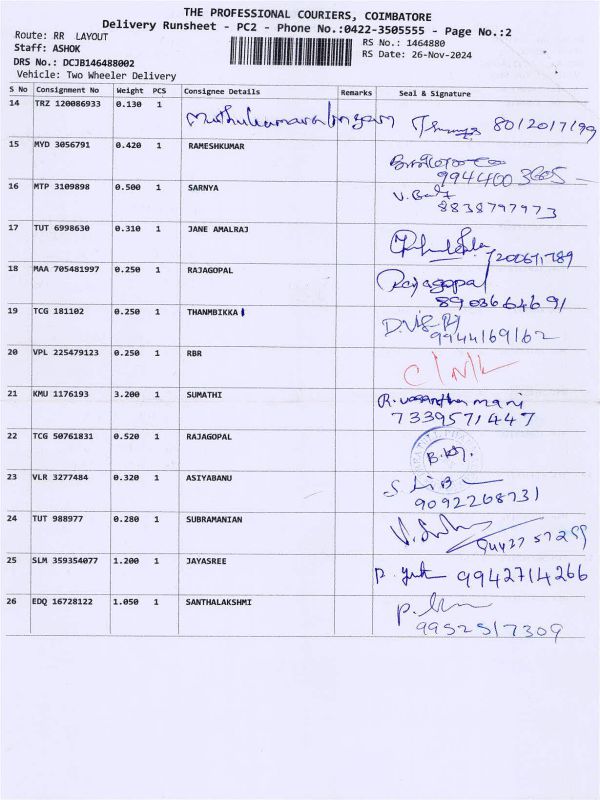 THE PROFESSIONAL COURIERS, COIMBATORE
Delivery Runsheet - PC2 - Phone No.:0422-3505555 - Page No.:2
Route: RR LAYOUT
Staff: ASHOK
RS No.: 1464880
DRS No.: DCJB146488002
RS Date: 26-Nov-2024
Vehicle: Two Wheeler Delivery
S No Consignment No Weight PCS Consignee Details Remarks Seal & Signature
14 TRZ 120086933 0.130 1 8012017199
15 MYD 3056791 0.420 1 RAMESHKUMAR
9944003605
16 MTP 3109898 0.500 1 SARNYA
8838797973
17 TUT 6998630 0.310 1 JANE AMALRAJ
18 MAA 705481997 0.250 1 RAJAGOPAL Rajagopal
8903664691
19 TCG 181102 0.250 1 THANMBIKKA
9944169162
20 VPL 225479123 0.250 1 RBR
C/N/L
21 KMU 1176193 3.200 1 SUMATHI R. vasantha mani
7339571447
22 TCG 50761831 0.520 1 RAJAGOPAL
23 VLR 3277484 0.320 1 ASIYABANU
9092268731
24 TUT 988977 0.280 1 SUBRAMANIAN
25 SLM 359354077 1.200 1 JAYASREE 9942714266
26 EDQ 16728122 1.050 1 SANTHALAKSHMI
9952517309